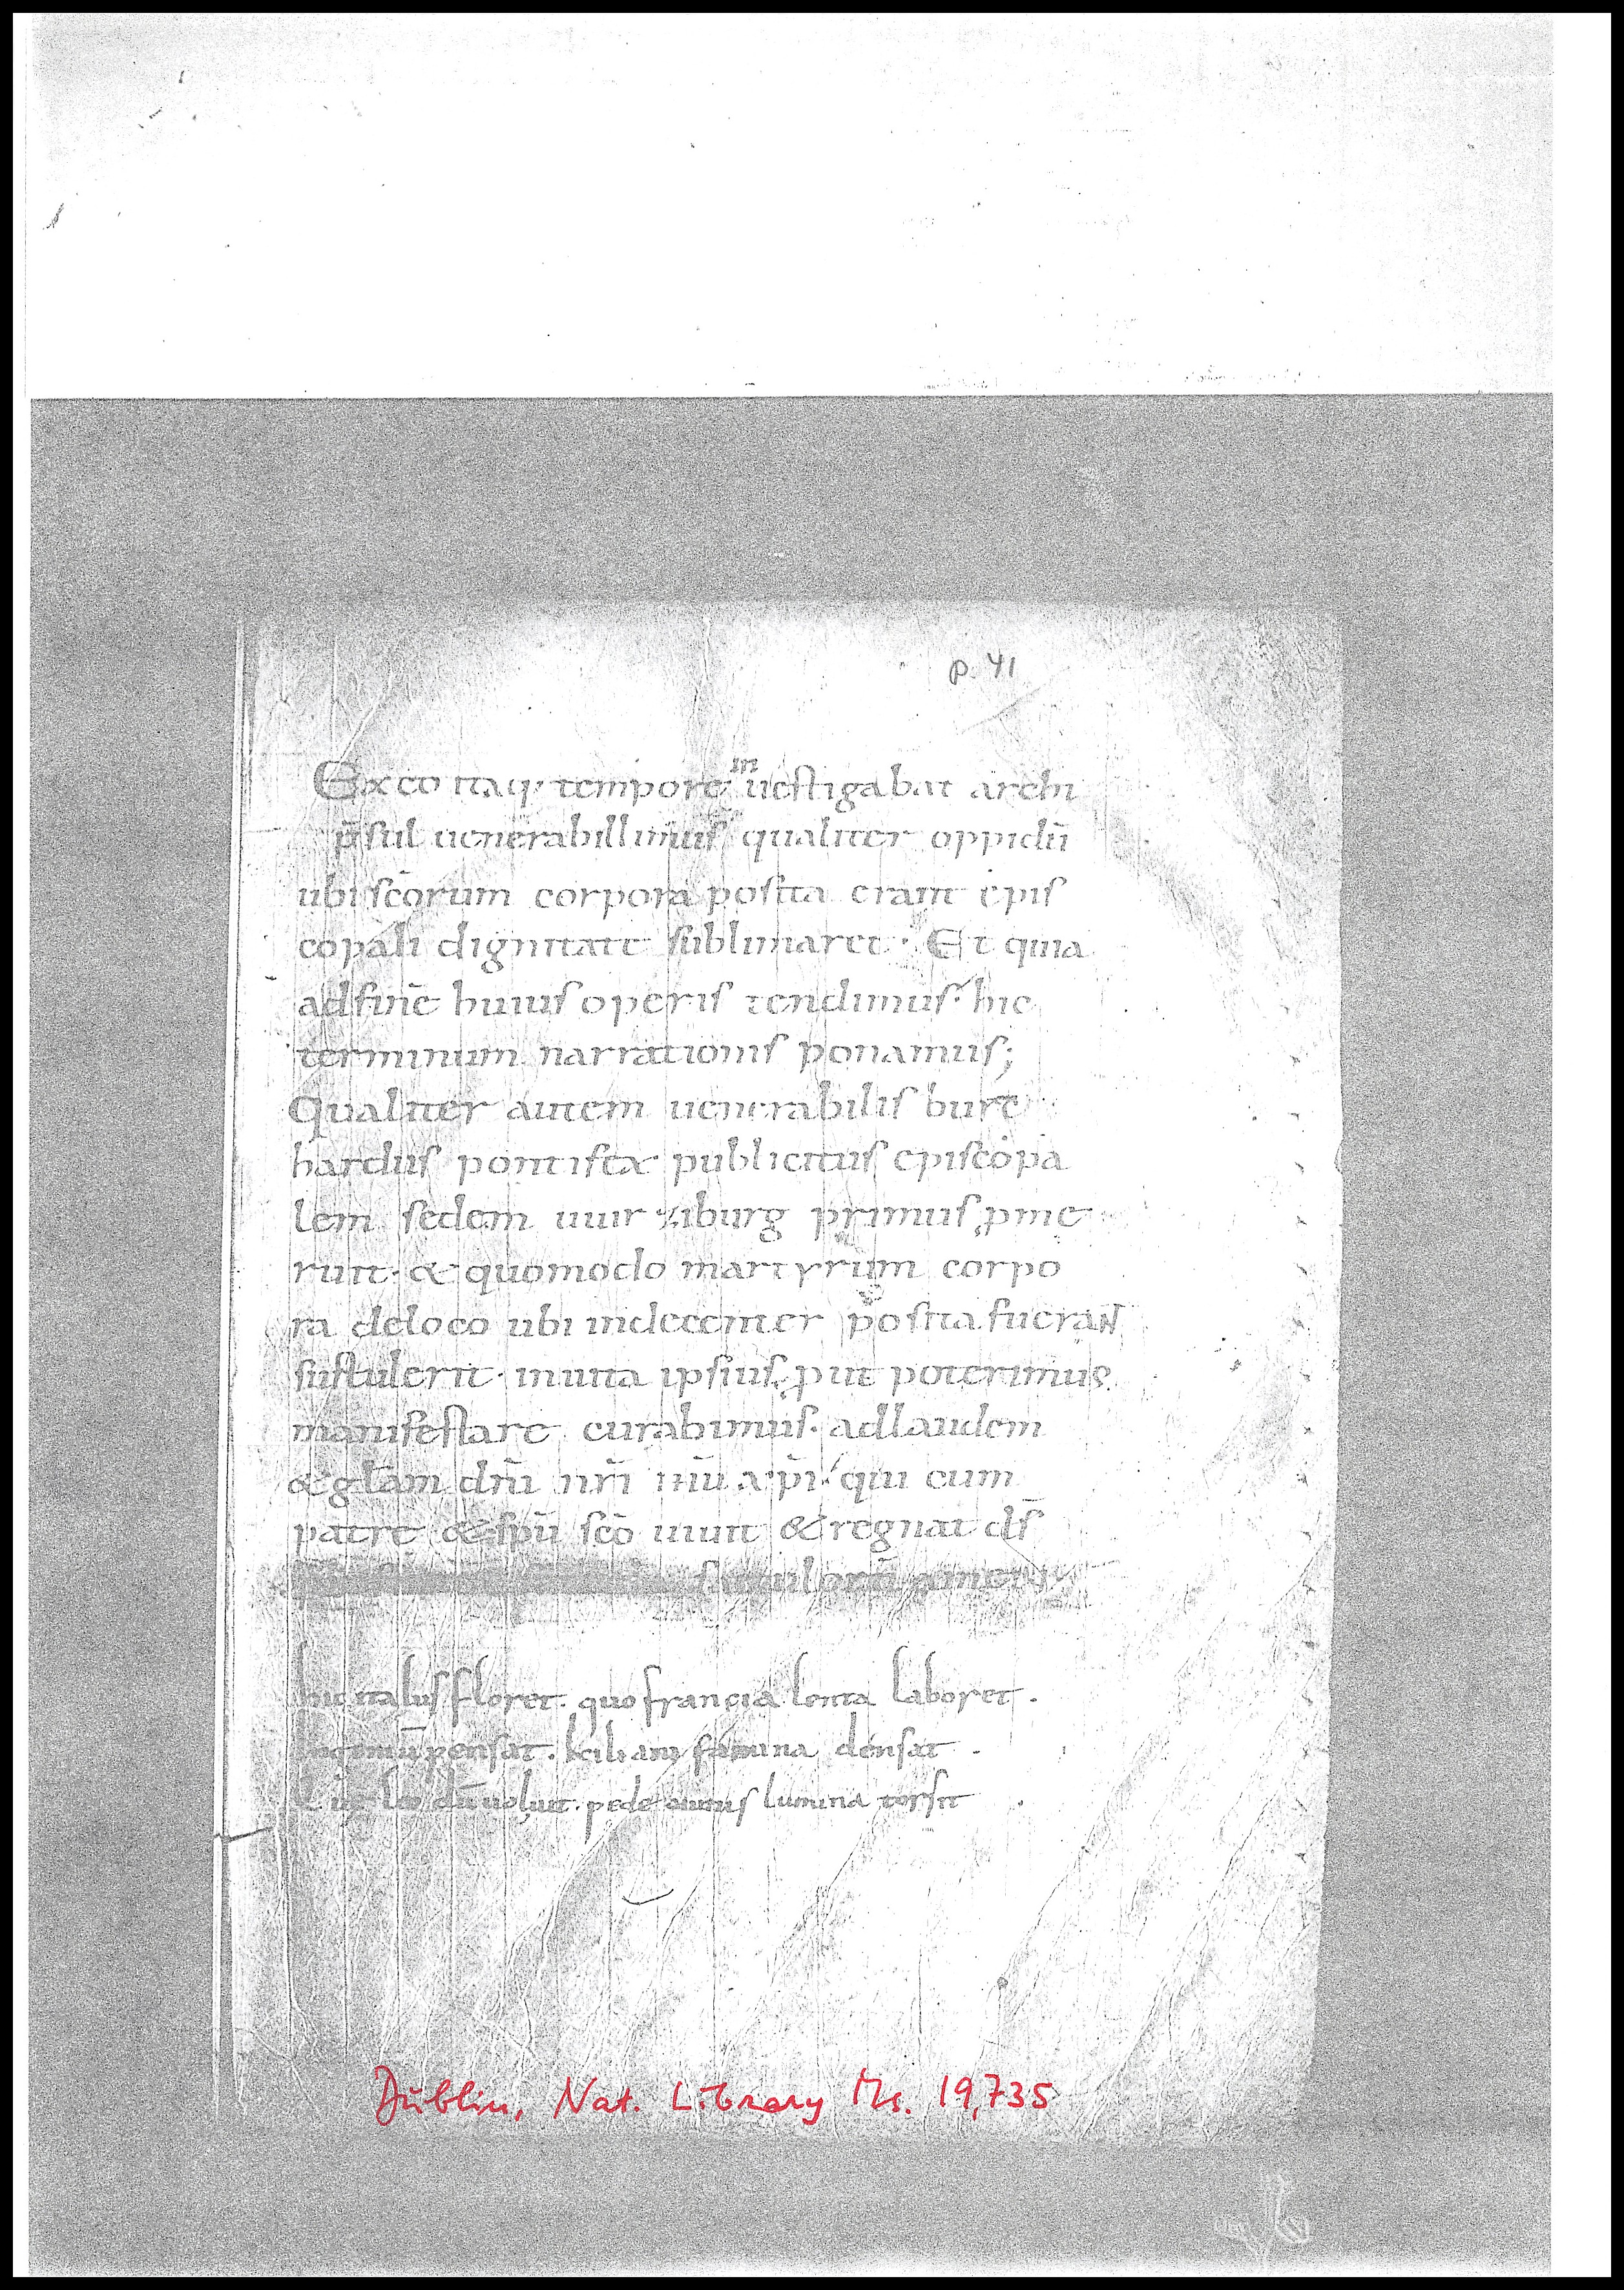 p. 41
Ex eo itaq; tempore inuestigabat archi
p̄sul uenerabillimus qualiter oppidū
ubi sc̄orum corpora posita erant epis
copali dignitate sublimaret. Et quia
ad finē huius operis tendimus. hic
terminum narrationis ponamus;
Qualiter autem uenerabilis burc
hardus pontifex publicitus episcopa
lem sedem uuirziburg primus pme
ruit. & quomodo martyrum corpo
ra deloco ubi indecenter posita fueraN
sustulerit. inuita ipsius, put poterimus
manifestare curabimus. adlaudem
& gl̄am dn̄i nr̄i ihū xp̄i. qui cum
patre & spū sc̄o uiuit & regnat ds̄
saeculorū amen
hic italus floret. quo francia lenta laboret.
Ingeniū pensat. kiliani famina densat.
leo dū uoluit. pede lumina torsit.
Dublin, Nat. Library Ms. 19,735